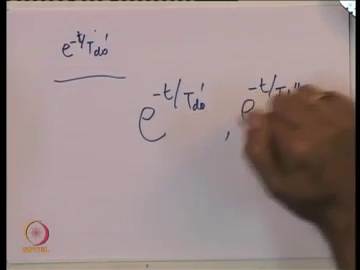 e^{-t/T'_{do}}
e^{-t/T'_{do}}, e^{-t/T
NPTEL